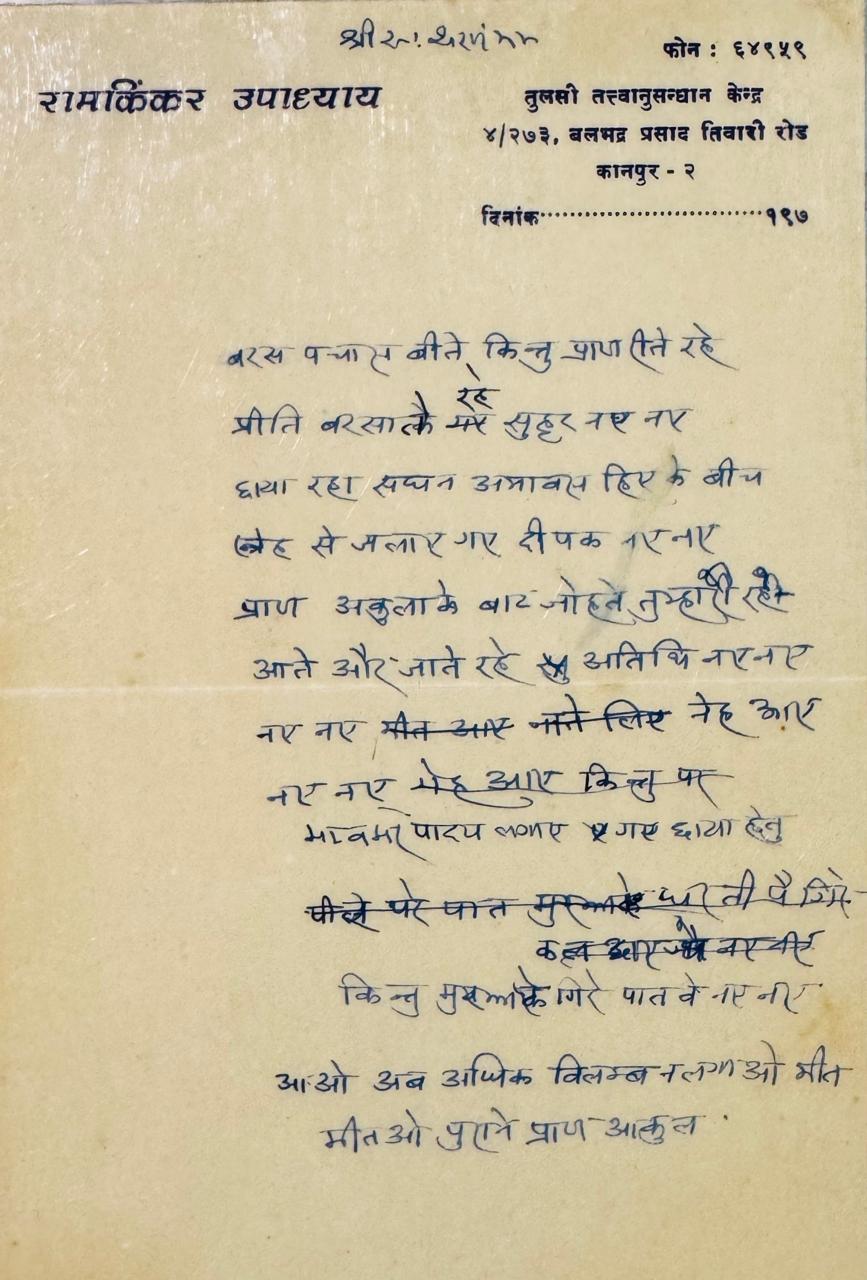 श्री रामः शरणं मम
फोन : ६४९५९
रामकिंकर उपाध्याय
तुलसी तत्त्वानुसन्धान केन्द्र
४/२७३, बलभद्र प्रसाद तिवारी रोड
कानपुर - २
दिनांक································१९७
बरस पचास बीते किन्तु प्राण रीते रहे
रहे
प्रीति बरसाते सुहृद नए नए
छाया रहा सघन अमावस हिए के बीच
स्नेह से जलाए गए दीपक नए नए
प्राण अकुलाके बाट जोहते तुम्हारी रहे
आते और जाते रहे अतिथि नए नए
नए नए मीत आए नाते लिए नेह आए
नए नए मेह आए किन्तु पर
भावमरे पादप लगाए गए छाया हेतु
पीले परे पात मुरझाके धरती पै गिरे
किन्तु मुरझाके गिरे पात वे नए नए
आओ अब अधिक विलम्ब न लगाओ मीत
मीत ओ पुराने प्राण आकुल